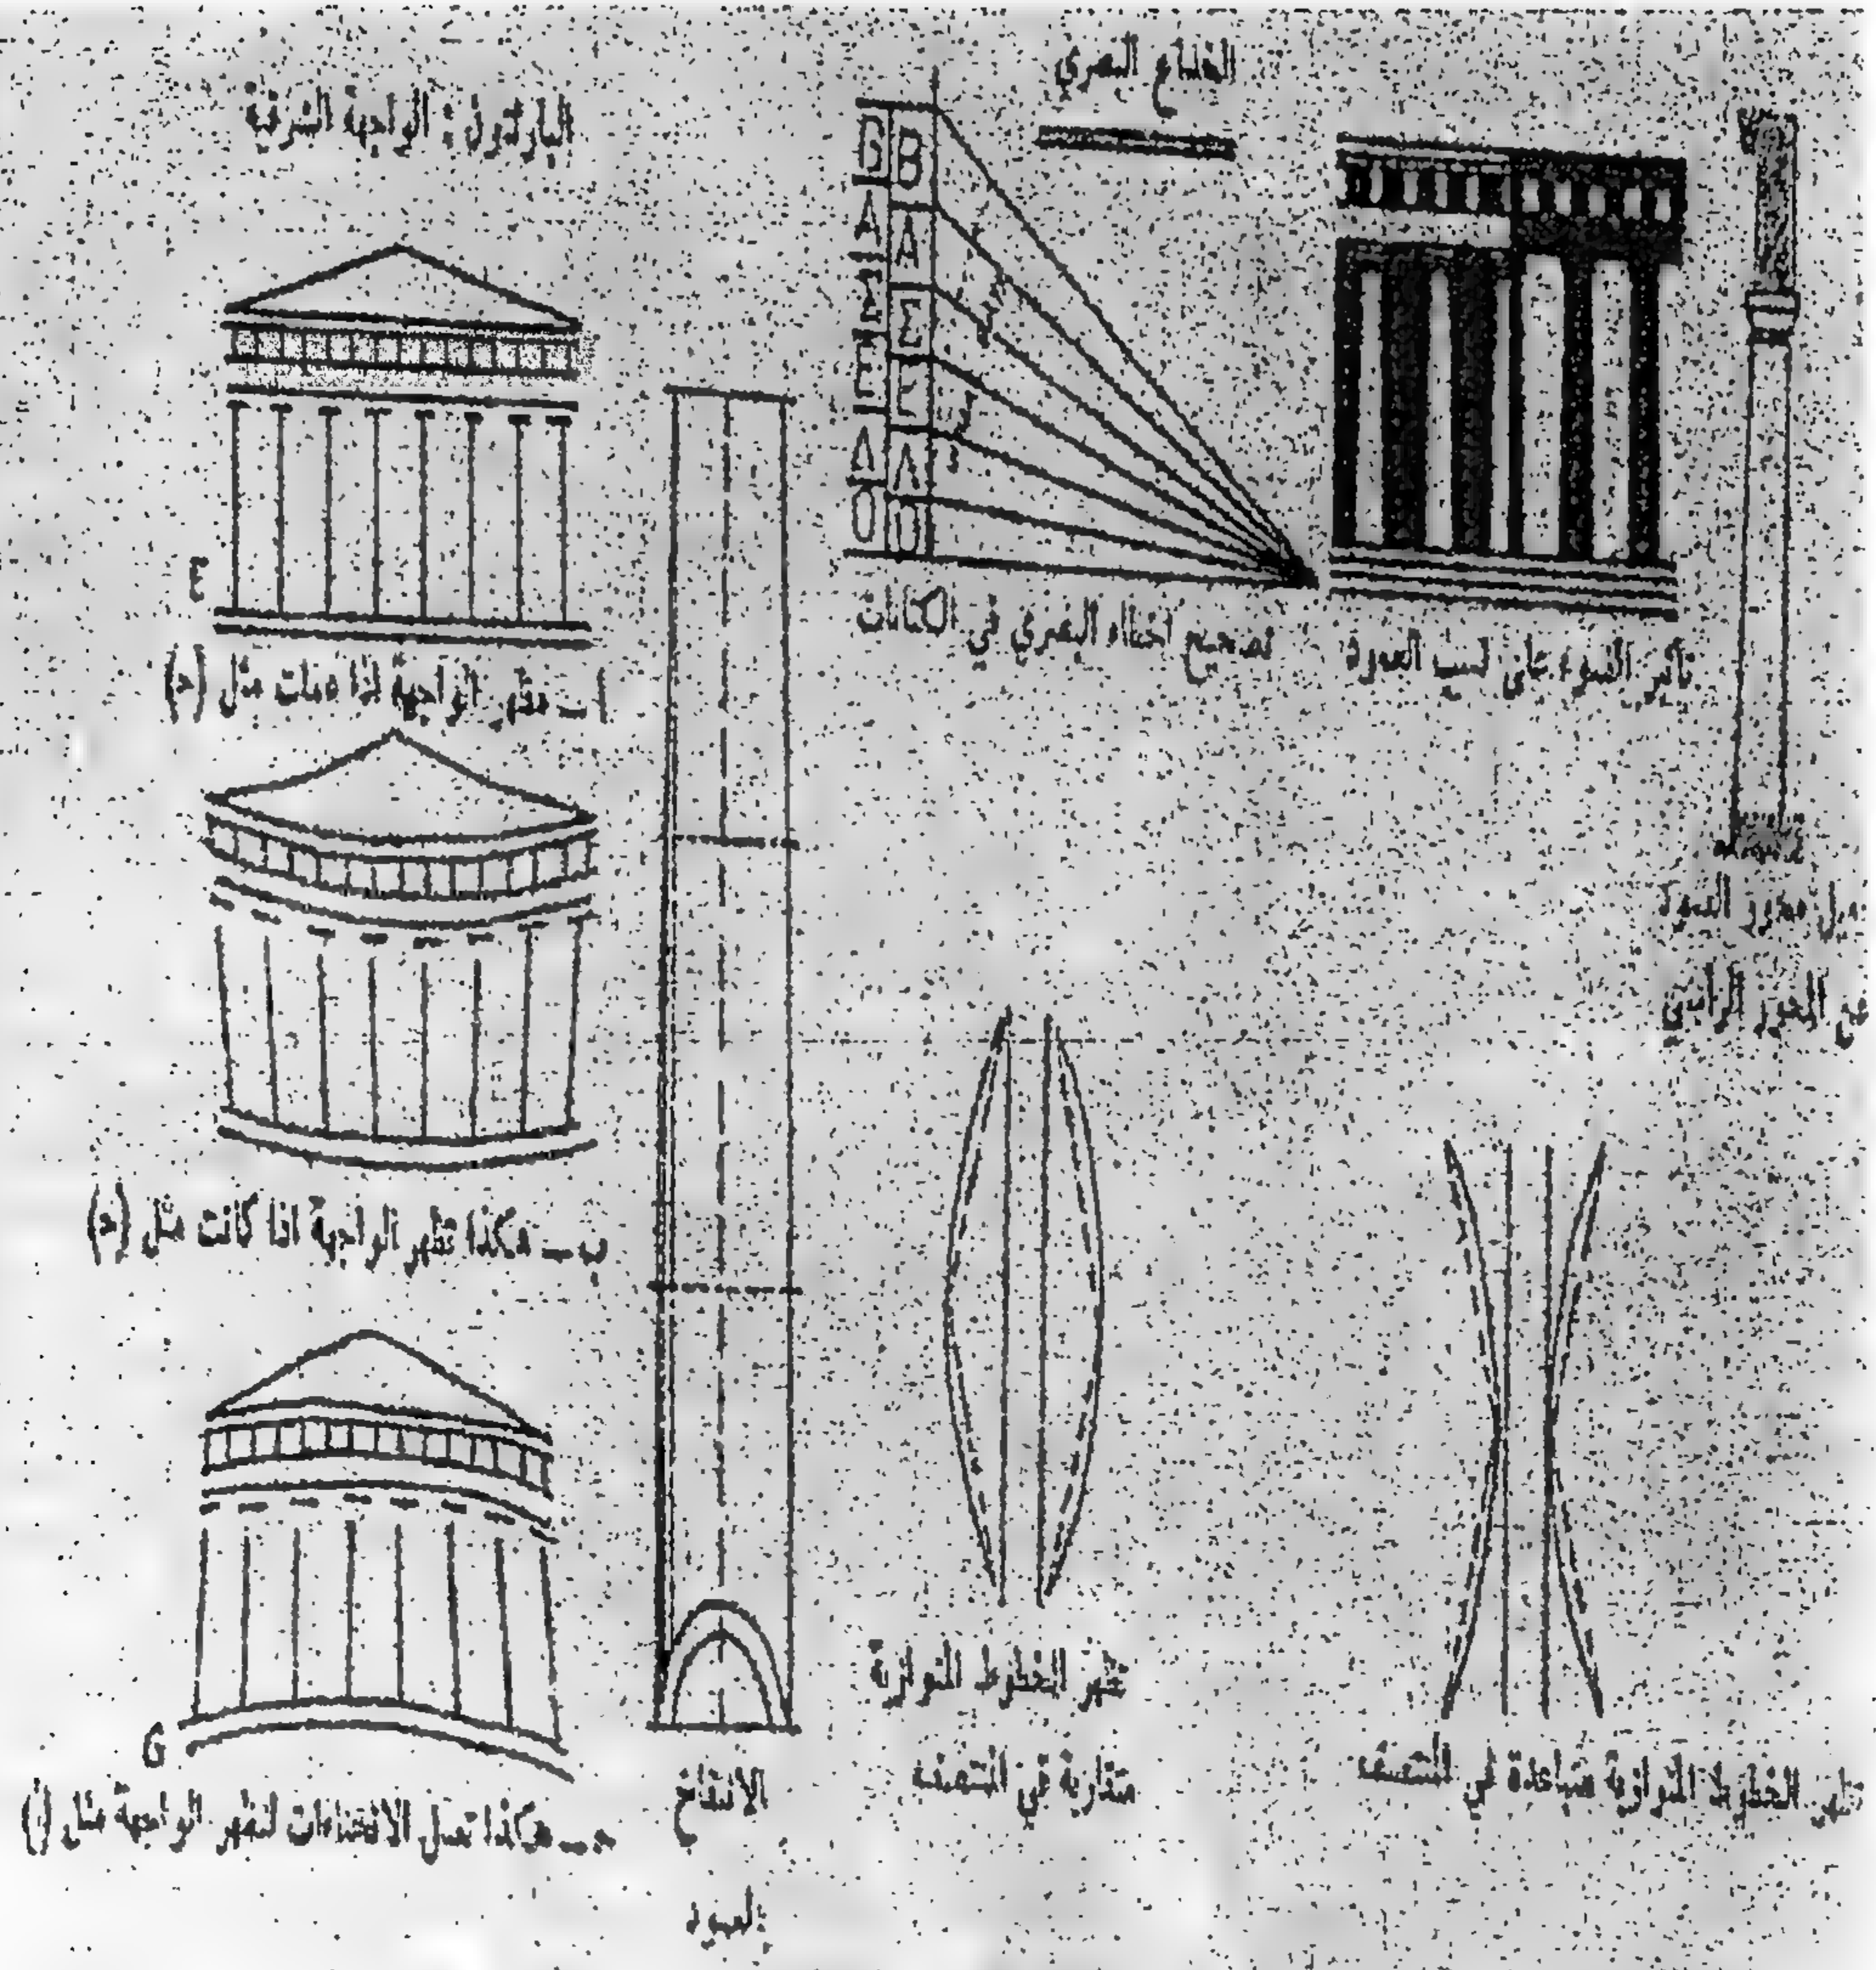 الخداع البصري
البارثنون : الواجهة الشرقية
G B
A A
Σ E
E E
A A
O O
تصحيح اخطاء البصري في الكتابات
تأثير الضوء على نسب العمود
E
ا ـ مظهر الواجهة اذا عملت مثل (ح)
ميل محور العمود
عن المحور الرأسي
ب ـ هكذا تظهر الواجهة اذا كانت مثل
G
ح ـ هكذا تعمل الانحناءات لتظهر الواجهة مثل (أ)
الانتفاخ
بالعمود
تظهر الخطوط المتوازية
متقاربة في المنتصف
تظهر الخطوط المتوازية متباعدة في المنتصف